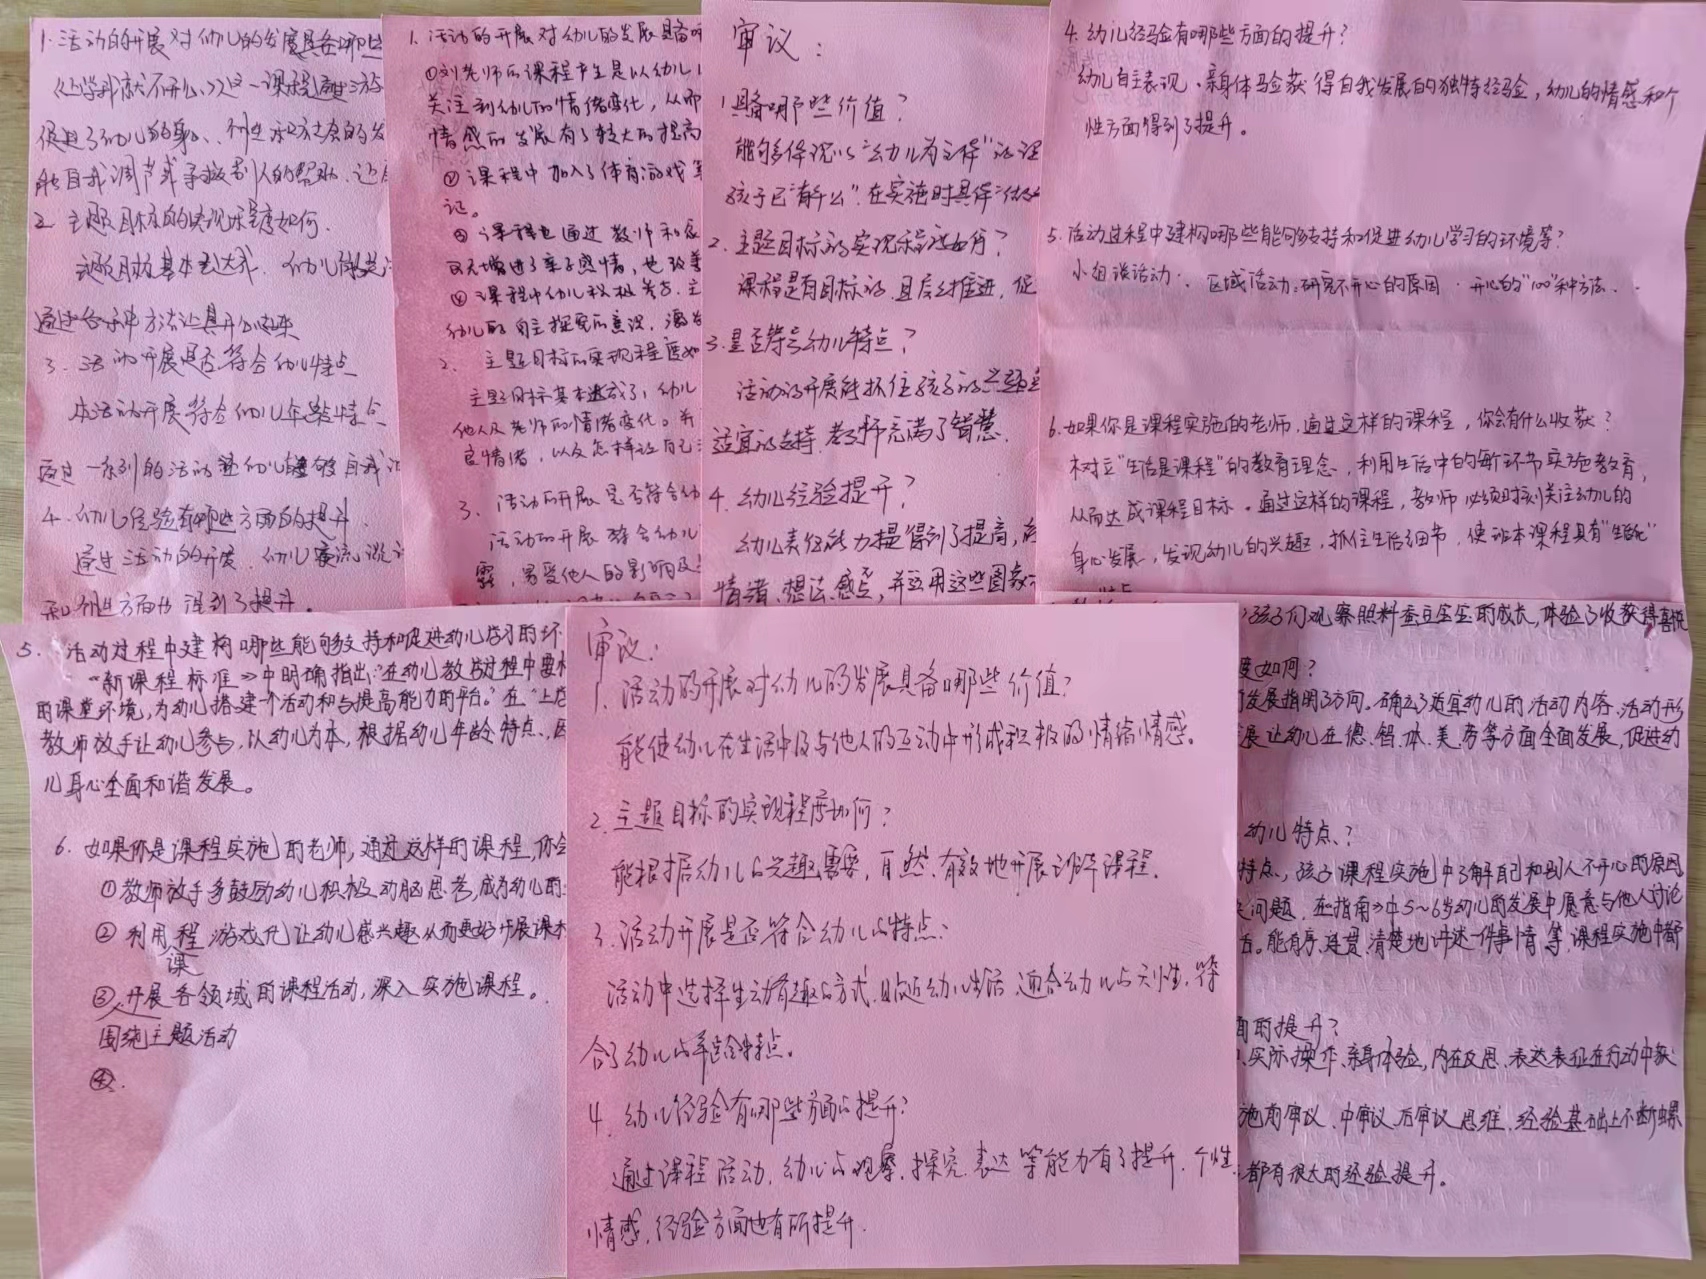 1. 活动的开展对幼儿的发展具备哪些
《上学就不开心》这一课程通过活
促进了幼儿的身心、个性和方方面的发
能自我调节或寻求别人的帮助
2. 主题目标的实现程度如何.
主题目标基本已达成. 幼儿
通过各种方法让其开心起来
3. 活动开展是否符合幼儿特点
本活动开展符合幼儿年龄特点
通过一系列的活动 幼儿能够自我
4. 幼儿经验有哪些方面的提升.
通过活动的开展. 幼儿交流
和个性方面也得到了提升。
1. 活动的开展对幼儿的发展具备哪
①刘老师的课程产生是以幼儿
关注到幼儿的情绪变化，从而
情感的发展有了较大的提高
②课程中加入了体育游戏等
记。
③课程也通过教师和家
增进了亲子感情，也改善
④课程中幼儿积极参与，主
幼儿的自主探究的意识，激发
2. 主题目标的实现程度如
主题目标基本达成了，幼儿
他人及老师的情绪变化。并
良情绪，以及怎样让自己
3. 活动的开展是否符合幼
活动的开展符合幼儿
露，易受他人的影响及
审议：
1.具备哪些价值？
能够体现以“幼儿为主体”的课
孩子已“有什么”.在实施时具体
2.主题目标的实现程度如何？
课程是有目标的，且层层推进，促
3.是否符号幼儿特点？
活动的开展能抓住孩子的兴趣
适宜的支持.老师充满了智慧.
4.幼儿经验提升？
幼儿表征能力提得到了提高，
情绪、想法、感点，并运用这些图象
4. 幼儿经验有哪些方面的提升？
幼儿自主表现、亲身体验获得自我发展的独特经验，幼儿的情感和个
性方面得到了提升。
5. 活动过程中建构哪些能够支持和促进幼儿学习的环境等？
小组谈话动： 区域活动：研究不开心的原因．开心的“100”种方法．
6.如果你是课程实施的老师，通过这样的课程，你会有什么收获？
树立“生活是课程”的教育理念，利用生活中的每个环节实施教育，
从而达成课程目标。通过这样的课程，教师必须时刻关注幼儿的
身心发展，发现幼儿的兴趣，抓住生活细节，使班本课程具有“生活化”
特点
5. 活动过程中建构哪些能够支持和促进幼儿学习的环
“新课程标准”中明确指出：“在幼儿教与过程中要
的课堂环境，为幼儿搭建一个活动和与提高能力的平台。”在“上
教师放手让幼儿参与，以幼儿为本，根据幼儿年龄特点、
儿身心全面和谐发展。
6. 如果你是课程实施的老师，通过这样的课程，你会
①教师放手多鼓励幼儿积极动脑思考，成为幼儿的
②利用课程游戏化让幼儿感兴趣从而更好开展课本
③围绕主题活动开展各领域的课程活动，深入实施课程。
④.
审议：
1. 活动的开展对幼儿的发展具备哪些价值？
能使幼儿在生活中及与他人的互动中形成积极的情绪情感。
2. 主题目标的实现程度如何？
能根据幼儿的兴趣需要，自然、有效地开展课程.
3. 活动开展是否符合幼儿的特点：
活动中选择生动有趣的方式，贴近幼儿生活、适合幼儿的天性，符
合了幼儿的年龄特点。
4. 幼儿经验有哪些方面的提升？
通过课程活动，幼儿的观察，探究，表达等能力有了提升，个性
情感，经验方面也有所提升.
孩子们观察照料蚕豆宝宝的成长，体验了收获得喜悦
度如何？
发展指明了方向。确立了适宜幼儿的活动内容、活动形
展让幼儿在德、智、体、美、劳等方面全面发展，促进幼
幼儿特点、？
特点，孩子课程实施中了解自己和别人不开心的原因
问题．在指南》中5～6岁幼儿的发展中愿意与他人讨论
。能有序、连贯、清楚地讲述一件事情等．课程实施中都
面的提升？
、实际操作、亲身体验，内在反思、表达表征在行动中获
施前审议、中审议、后审议思维、经验基础上不断螺
都有很大的经验提升。